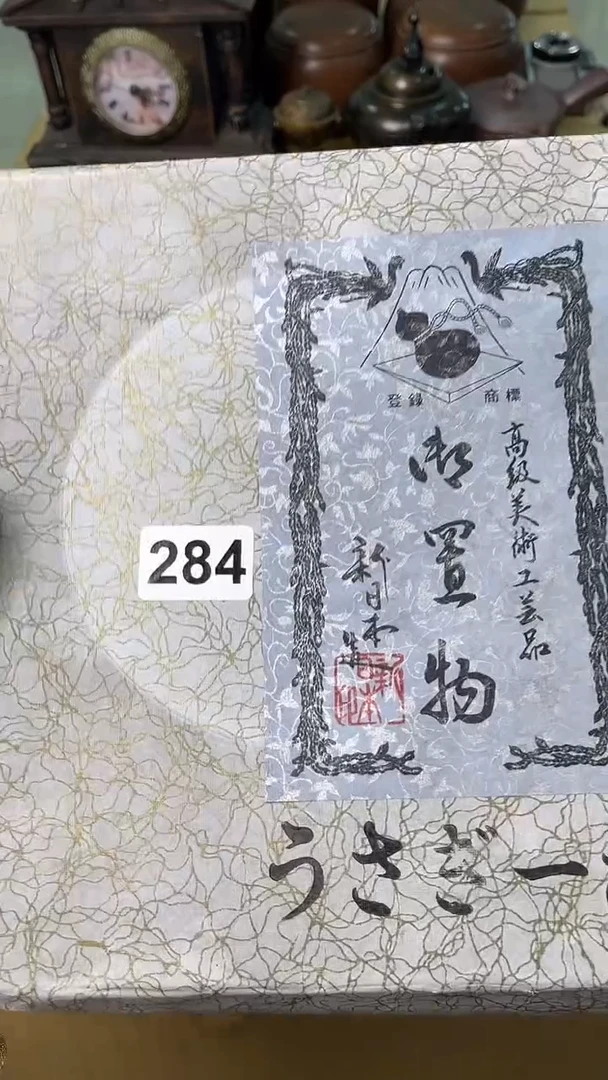 登録 商標
高級美術工芸品
御置物
新日本造
284
うさぎ一